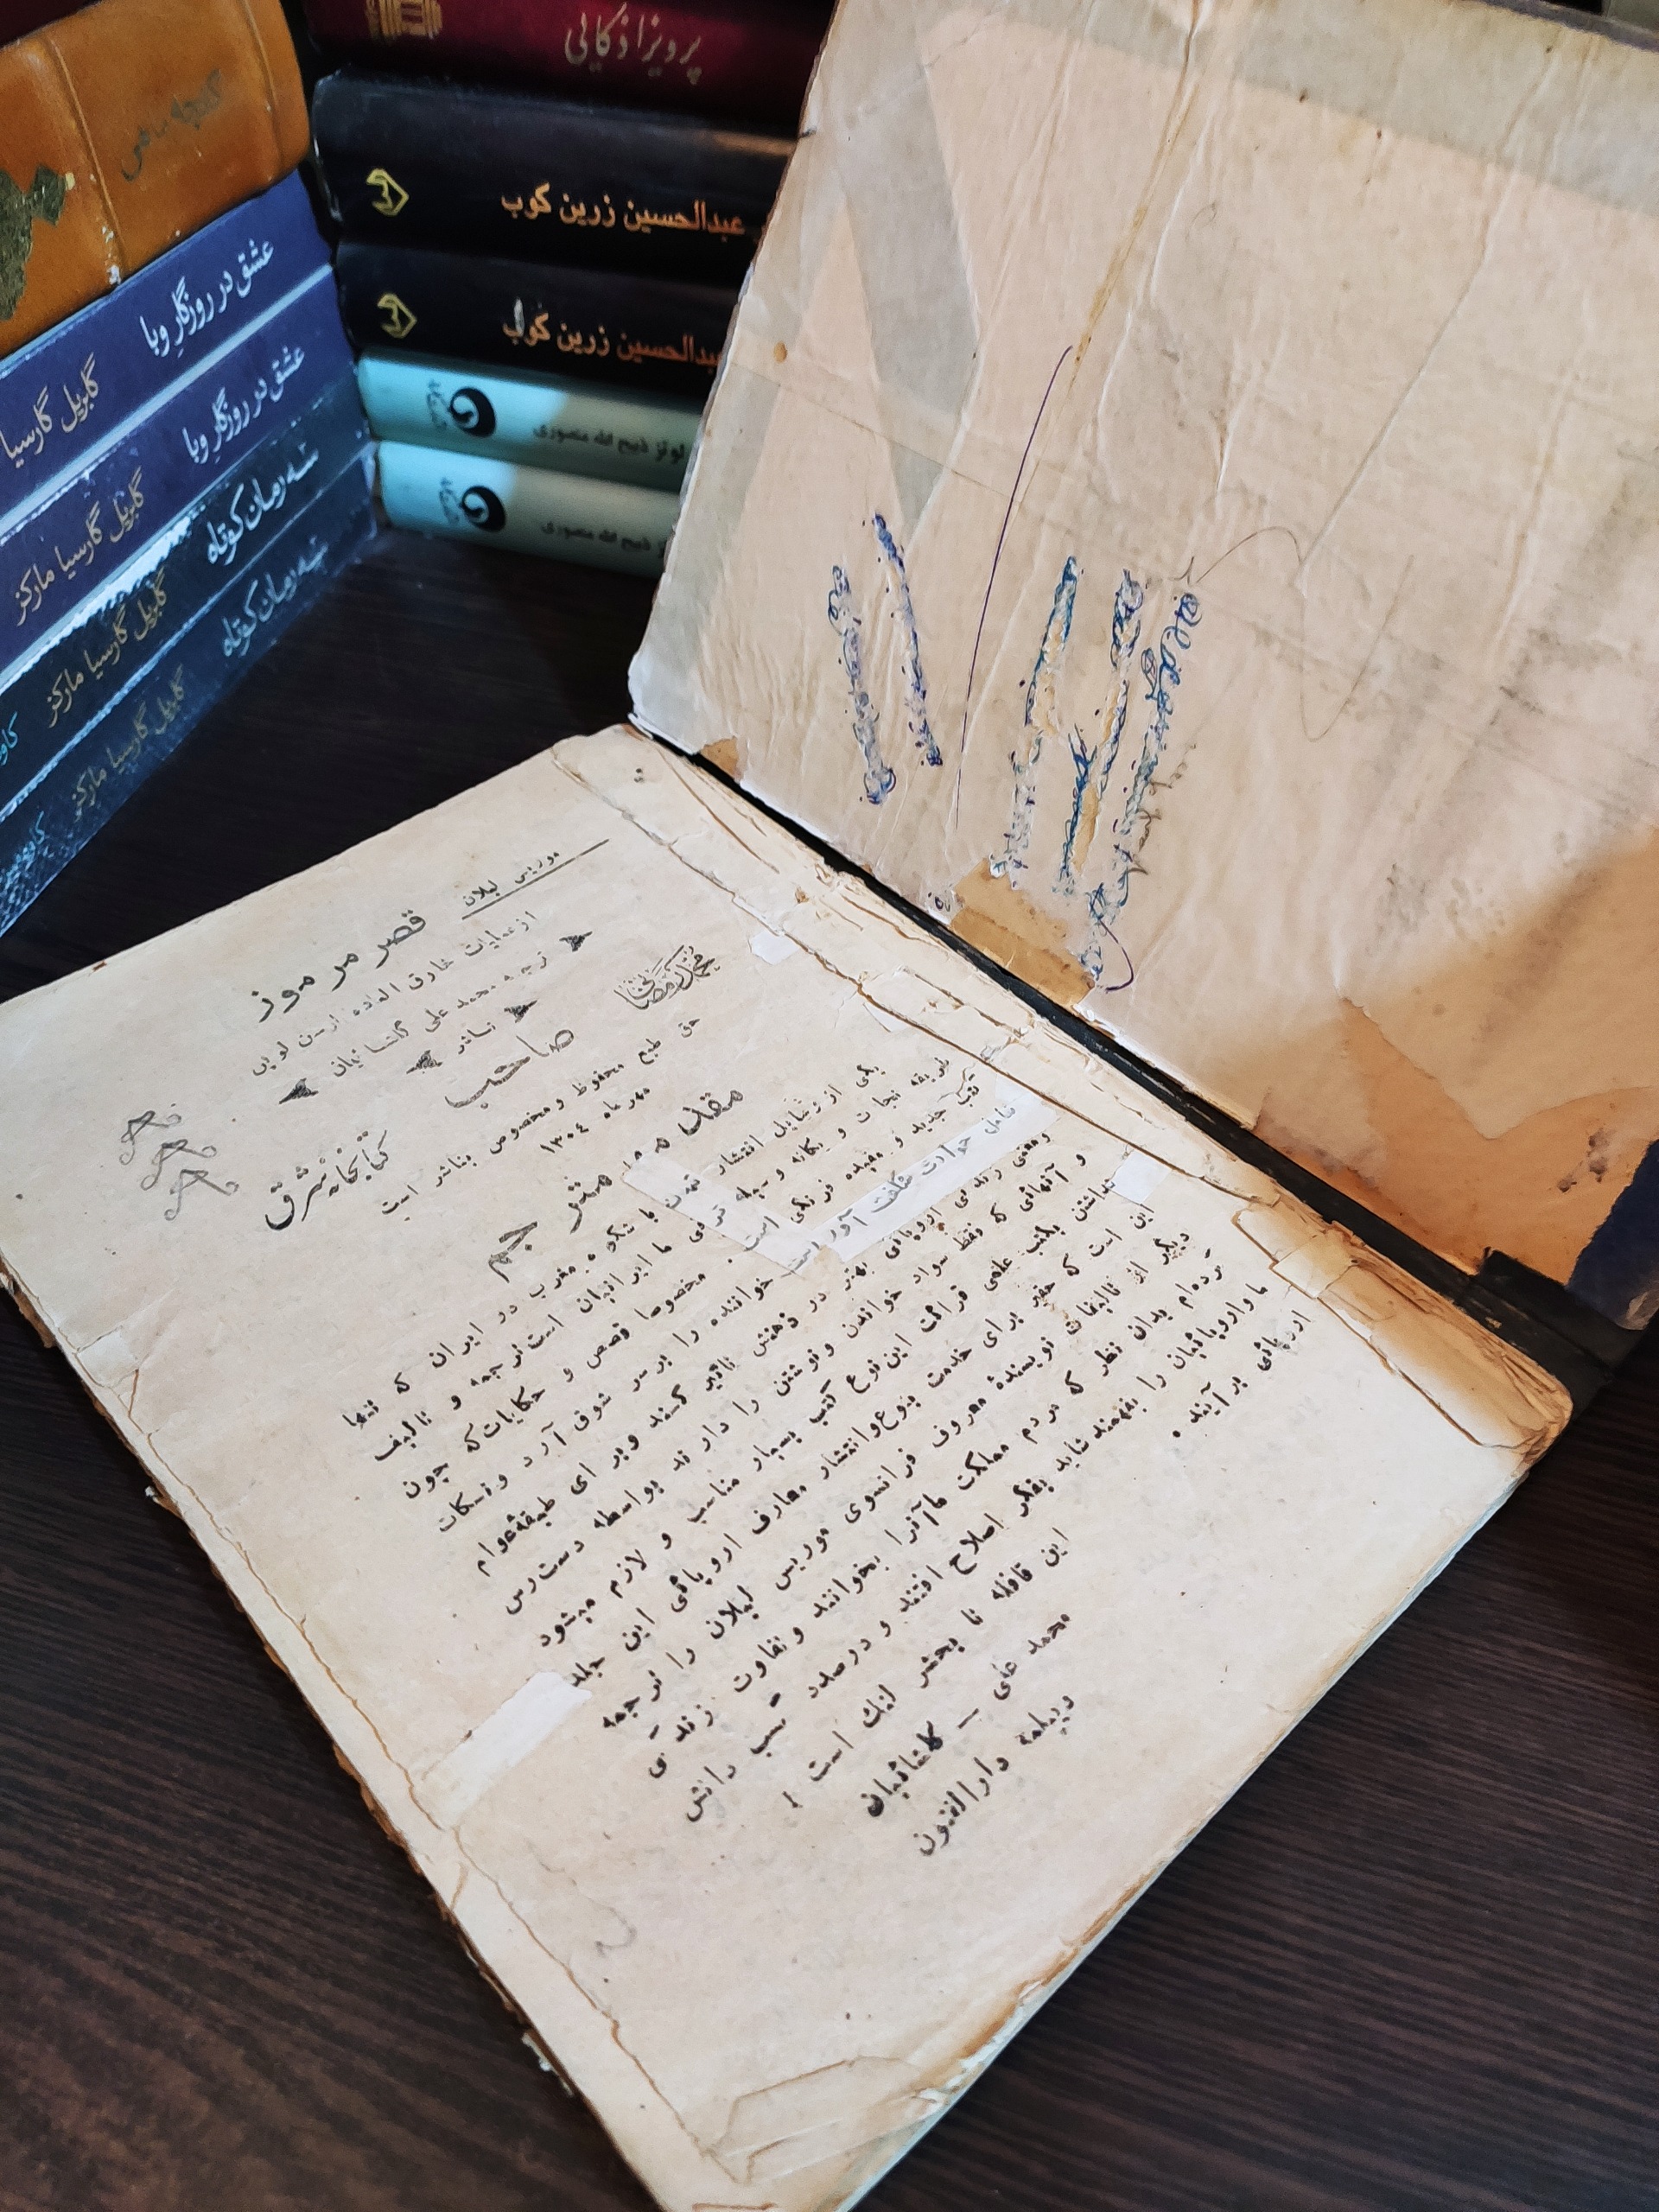 پرویز اذکائی
عبدالحسین زرین کوب
عبدالحسین زرین کوب
ذبیح الله منصوری
ذبیح الله منصوری
عشق در روزگار وبا
گابریل گارسیا
عشق در روزگار وبا
گابریل گارسیا مارکز
سه رمان کوتاه
گابریل گارسیا مارکز
سه رمان کوتاه
گابریل گارسیا مارکز
موریس لبلان
قصر مرموز
از عملیات خارق العاده ارسن لوپن
ترجمه محمد علی گلشائیان
ناشر
محمد رمضانی
صاحب
کتابخانه شرق
حق طبع محفوظ و مخصوص بناشر است
مهر ماه ۱۳۰۴
مقدمه مترجم
یکی از وسایل انتشار تمدن با شکوه مغرب در ایران که تنها
طریقه نجات و یگانه وسیله ترقی ما ایرانیان است ترجمه و تالیف
کتب جدید و مفیده فرنگی است. مخصوصا قصص و حکایات که چون
شامل حوادث شگفت آور است خواننده را بر سر شوق آرد و نسکات
و معنی زندگی اروپائی بهتر در ذهنش تاثیر کنند و بر ای طبقه عوام
و آنهائی که فقط سواد خواندن و نوشتن را دار ند بواسطه دست رس
نداشتن بکتب علمی قرائت این نوع کتب بسیار مناسب و لازم میشود
این است که حقیر برای خدمت بنوع و انتشار معارف اروپائی این جلد
دیگر از تالیفات نویسندهٔ معروف فرانسوی موریس لبلان را ترجمه
کرده‌ام بدان نظر که مردم مملکت ما آنرا بخوانند و تفاوت زندگی
ما و اروپائیان را بفهمند شاید بفکر اصلاح افتند و درصدد کسب دانش
اروپائی بر آیند .
این قافله تا بحشر لنگ است !
محمد علی – گلشائیان
دیپلمه دارالفنون